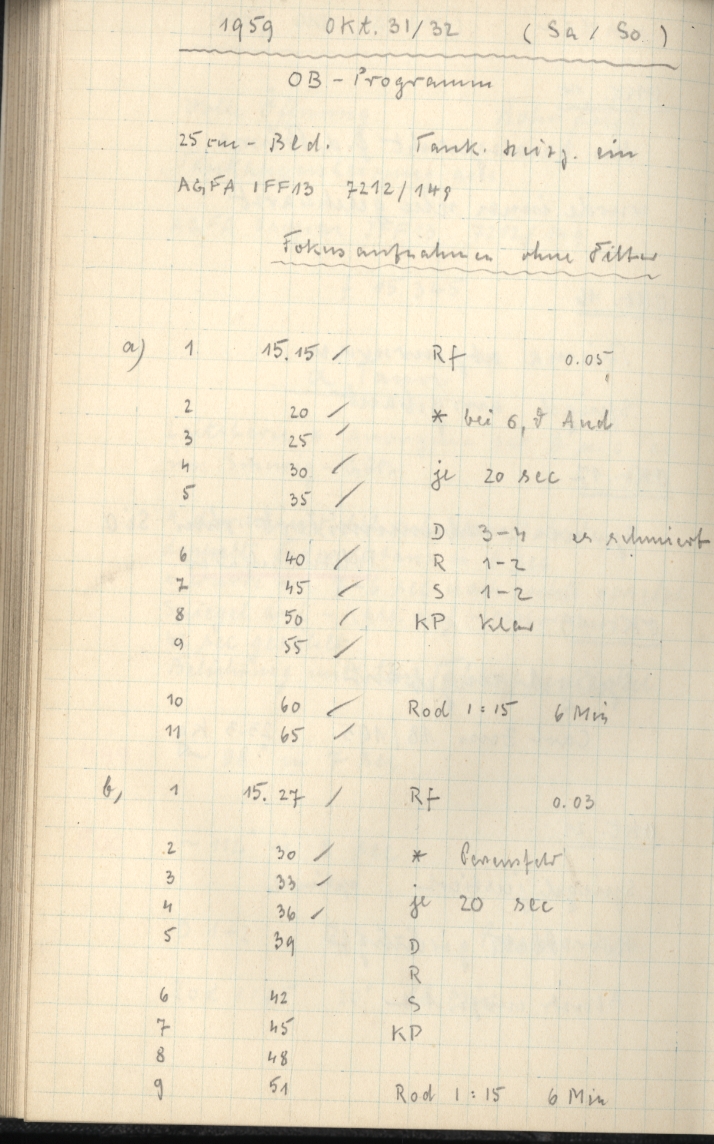 1959 Okt. 31/32 (Sa / So)
OB-Programm
25cm-Bld. Tauk. heizg. ein
AGFA IFF13 7212/149
Fokusaufnahmen ohne Filter
a) 1 15.15 / Rf 0.05
2 20 / * bei 6, ϑ And
3 25 /
4 30 / je 20 sec
5 35 /
D 3-4 es schmiert
6 40 / R 1-2
7 45 / S 1-2
8 50 / KP klar
9 55 /
10 60 / Rod 1:15 6 Min
11 65 /
b, 1 15.27 / Rf 0.03
2 30 / *
3 33 /
4 36 / je 20 sec
5 39 D
R
6 42 S
7 45 KP
8 48
9 51 Rod 1:15 6 Min